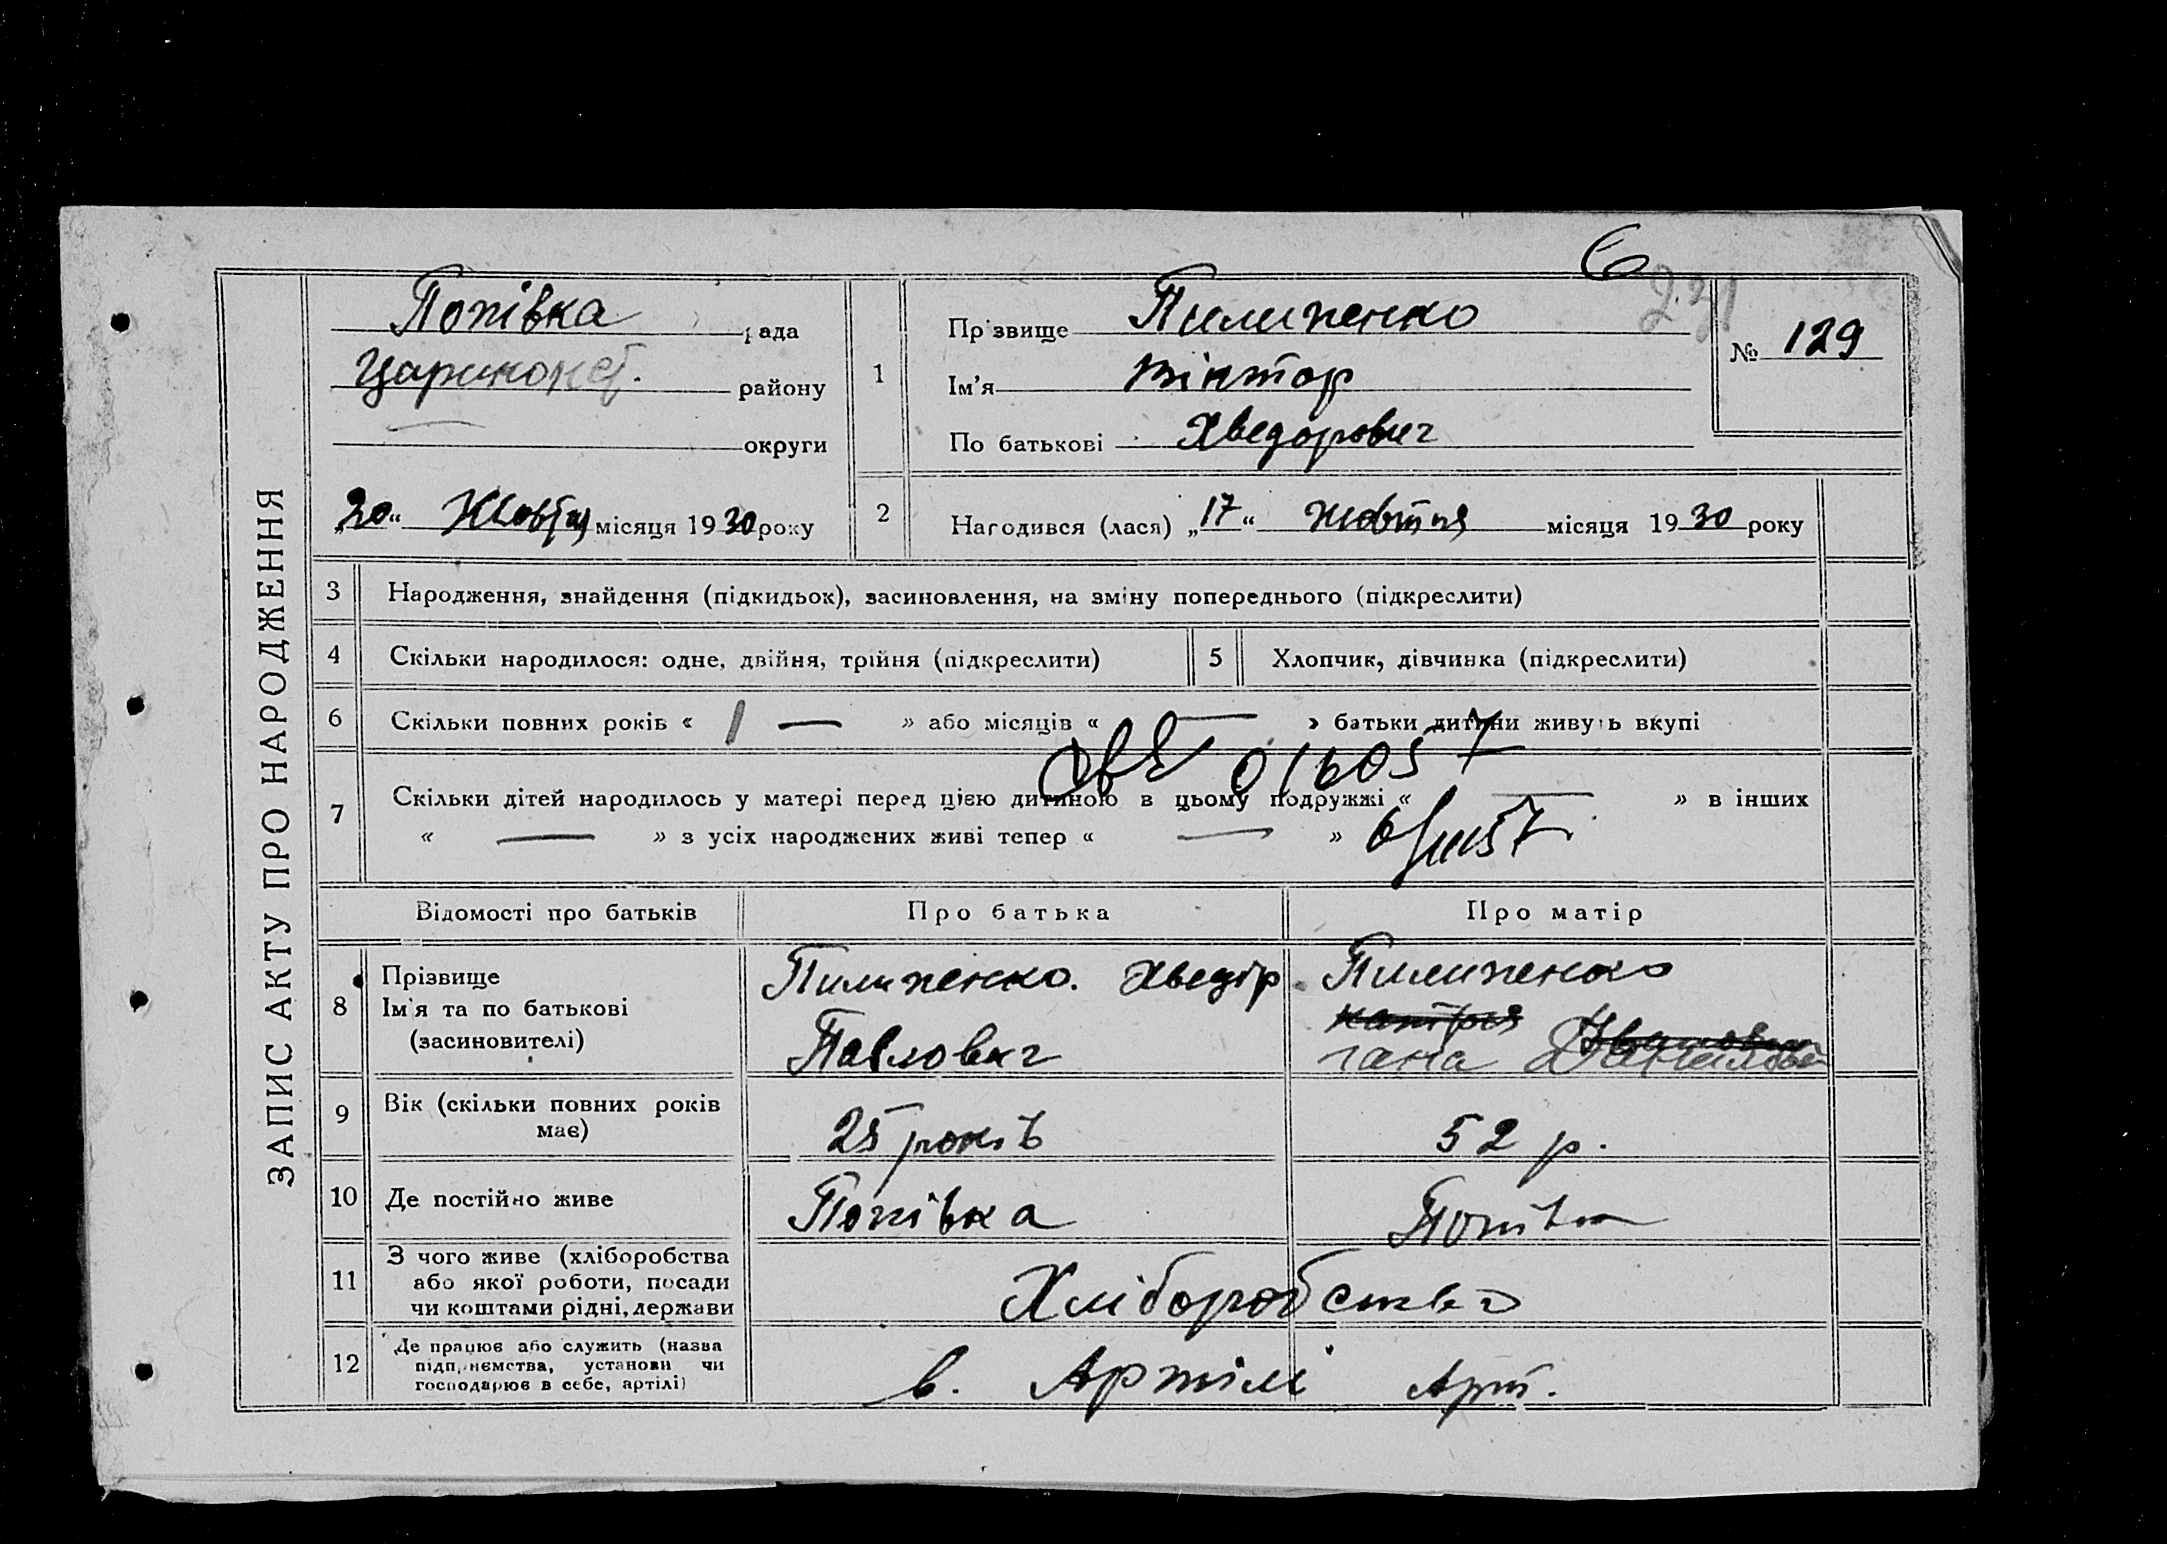 6
Попівка рада
Царичонсь. району
округи
„20“ Жовтня місяця 1930 року
1
Прізвище Пилипенко
Ім’я Віктор
По батькові Хведорович
№ 129
2
Нагодився (лася) „17“ жовтня місяця 1930 року
ЗАПИС АКТУ ПРО НАРОДЖЕННЯ
3 Народження, знайдення (підкидьок), засиновлення, на зміну попереднього (підкреслити)
4 Скільки народилося: одне, двійня, трійня (підкреслити) 5 Хлопчик, дівчинка (підкреслити)
6 Скільки повних років « 1 — » або місяців « — » батьки дитини живуть вкупі
016057
7 Скільки дітей народилось у матері перед цією дитиною в цьому подружжі « — » в інших
« — » з усіх народжених живі тепер « — »
Відомості про батьків Про батька Про матір
8 Прізвище
Ім’я та по батькові
(засиновителі)
Пилипенко. Хведір
Павлович
Пилипенко
Данилов
9 Вік (скільки повних років
має)
25 років 52 р.
10 Де постійно живе Попівка Попівка
11 З чого живе (хліборобства
або якої роботи, посади
чи коштами рідні, держави
Хліборобство
12 Де працює або служить (назва
підприємства, установи чи
господарює в себе, артілі)
в. Артілі Арт.